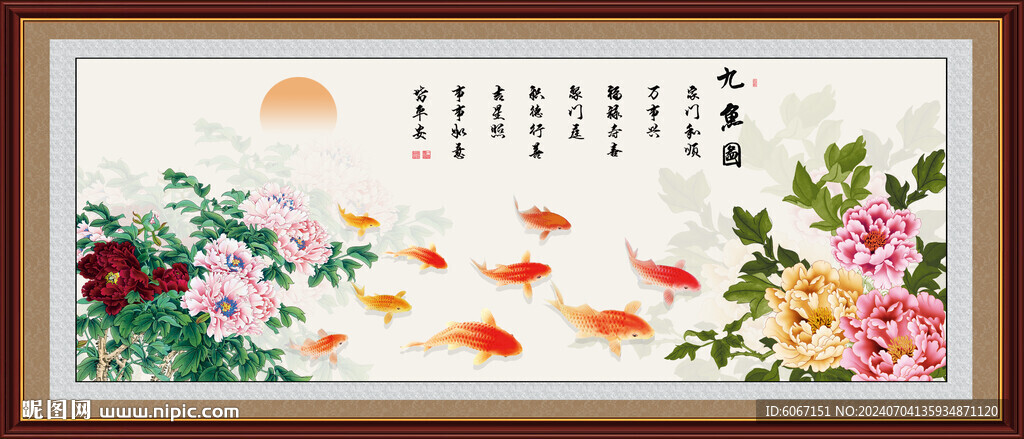 九魚圖
家门和順
万事兴
福禄寿喜
聚门庭
积德行善
吉星照
事事如意
皆平安
昵图网 www.nipic.com
ID:6067151 NO:20240704135934871120